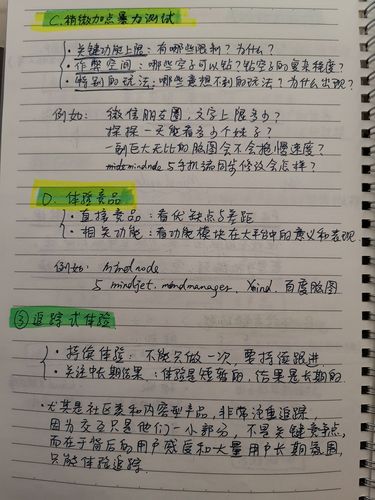 C. 稍微加点暴力测试
· 关键功能上限：有哪些限制？为什么？
· 作弊空间：哪些空子可以钻？钻空子的后果程度？
· 特别的玩法：哪些意想不到的玩法？为什么出现？
例如：微信朋友圈，文字上限多少？
探探一天能看多少个妹子？
一副巨大无比的脑图会不会拖慢速度？
与手机端同步修改会怎样？
D. 体验竞品
· 直接竞品：看优缺点与差距
· 相关功能：看功能模块在大平台中的意义和表现
例如：Mindnode
与 mindjet. mindmanager. Xmind. 百度脑图
③ 追踪式体验
· 持续体验：不能只做一次，要持续跟进
· 关注中长期结果：体验是短暂的，结果是长期的
· 尤其是社区类和内容型产品，非常注重追踪，
因为交互只是他们一小部分，不是关键竞争点，
而在于背后的用户感度和大量用户长期氛围，
只能体验追踪.